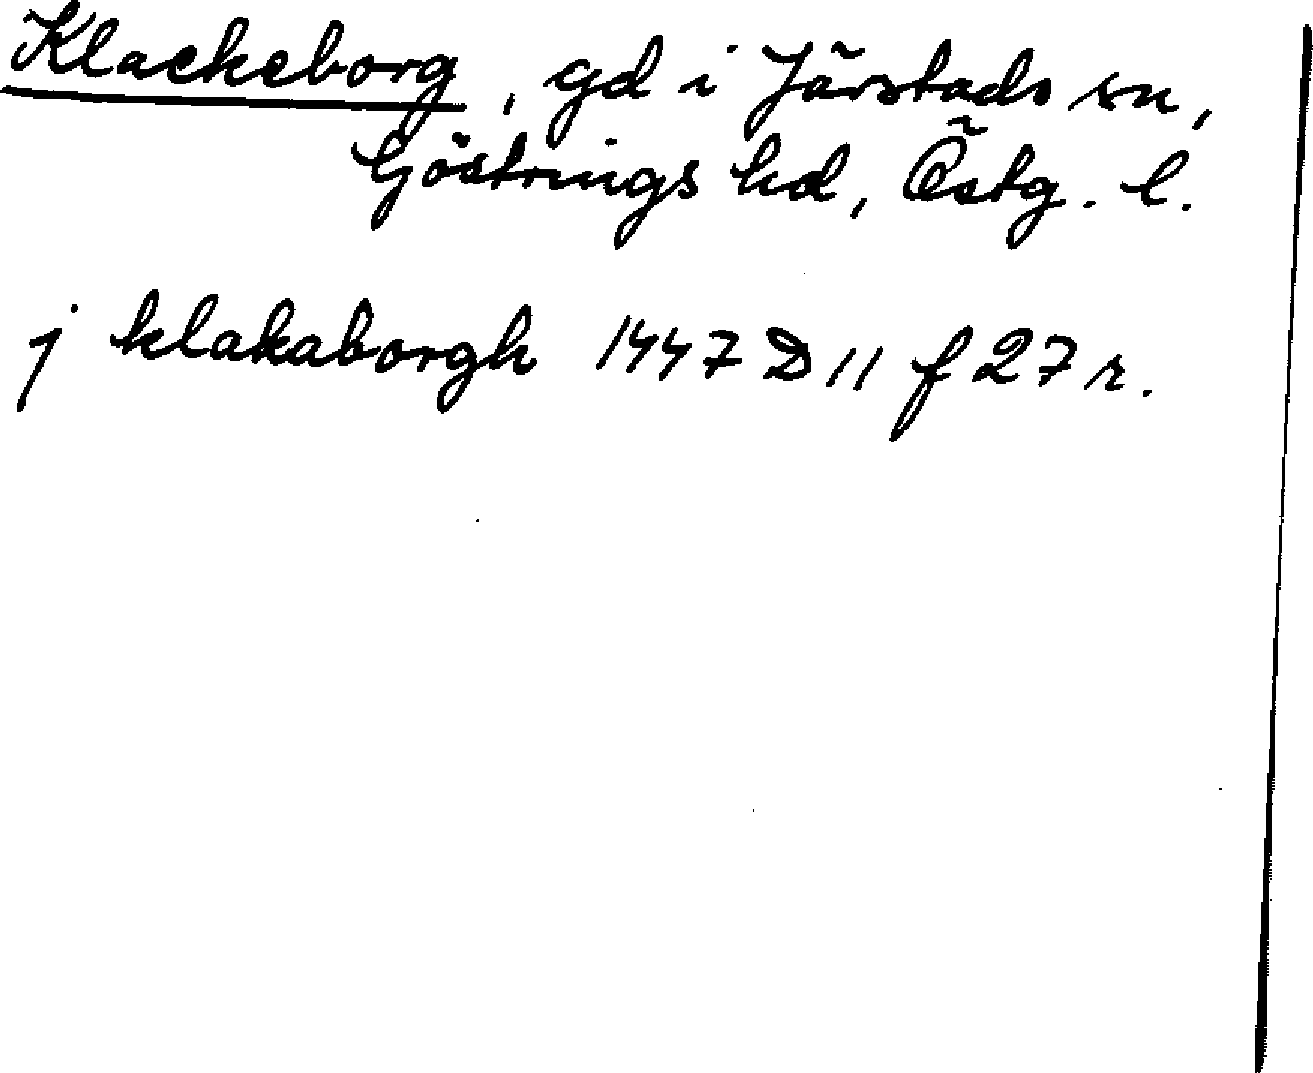 Klackeborg, gd i Järstads sn,
Göstrings hd, Östg. l.
j klakaborgh 1447 D 11 f 27 r.